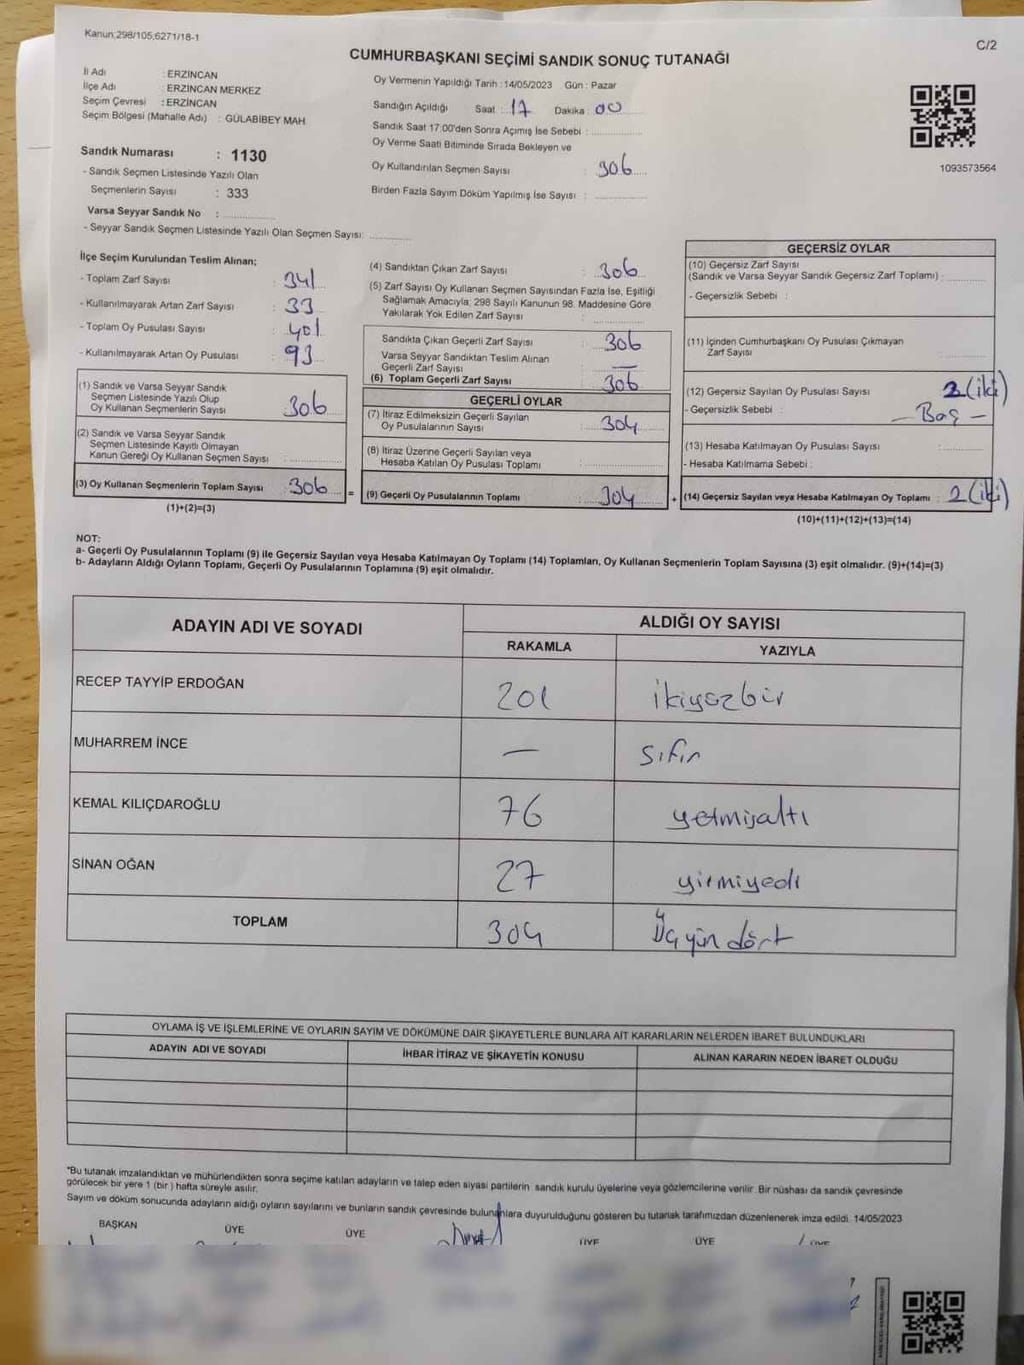 Kanun;298/105;6271/18-1
C/2
CUMHURBAŞKANI SEÇİMİ SANDIK SONUÇ TUTANAĞI
İl Adı : ERZİNCAN
İlçe Adı : ERZİNCAN MERKEZ
Seçim Çevresi : ERZİNCAN
Seçim Bölgesi (Mahalle Adı) : GÜLABİBEY MAH
Sandık Numarası : 1130
- Sandık Seçmen Listesinde Yazılı Olan
Seçmenlerin Sayısı : 333
Varsa Seyyar Sandık No : ..............
- Seyyar Sandık Seçmen Listesinde Yazılı Olan Seçmen Sayısı: ............
Oy Vermenin Yapıldığı Tarih : 14/05/2023 Gün : Pazar
Sandığın Açıldığı Saat : 17 Dakika : 00
Sandık Saat 17:00'den Sonra Açımış İse Sebebi : ..............
Oy Verme Saati Bitiminde Sırada Bekleyen ve
Oy Kullandırılan Seçmen Sayısı : 306
Birden Fazla Sayım Döküm Yapılmış İse Sayısı : ..............
1093573564
İlçe Seçim Kurulundan Teslim Alınan;
- Toplam Zarf Sayısı : 341
- Kullanılmayarak Artan Zarf Sayısı : 33
- Toplam Oy Pusulası Sayısı : 401
- Kullanılmayarak Artan Oy Pusulası : 93
(1) Sandık ve Varsa Seyyar Sandık
Seçmen Listesinde Yazılı Olup
Oy Kullanan Seçmenlerin Sayısı : 306
(2) Sandık ve Varsa Seyyar Sandık
Seçmen Listesinde Kayıtlı Olmayan
Kanun Gereği Oy Kullanan Seçmen Sayısı : ..............
(3) Oy Kullanan Seçmenlerin Toplam Sayısı : 306 =
(1)+(2)=(3)
(4) Sandıktan Çıkan Zarf Sayısı : 306
(5) Zarf Sayısı Oy Kullanan Seçmen Sayısından Fazla İse, Eşitliği
Sağlamak Amacıyla; 298 Sayılı Kanunun 98. Maddesine Göre
Yakılarak Yok Edilen Zarf Sayısı : ..............
Sandıkta Çıkan Geçerli Zarf Sayısı : 306
Varsa Seyyar Sandıktan Teslim Alınan
Geçerli Zarf Sayısı : —
(6) Toplam Geçerli Zarf Sayısı : 306
GEÇERLİ OYLAR
(7) İtiraz Edilmeksizin Geçerli Sayılan
Oy Pusulalarının Sayısı : 304
(8) İtiraz Üzerine Geçerli Sayılan veya
Hesaba Katılan Oy Pusulası Toplamı : ..............
(9) Geçerli Oy Pusulalarının Toplamı : 304 +
GEÇERSİZ OYLAR
(10) Geçersiz Zarf Sayısı
(Sandık ve Varsa Seyyar Sandık Geçersiz Zarf Toplamı) : ............
- Geçersizlik Sebebi :
(11) İçinden Cumhurbaşkanı Oy Pusulası Çıkmayan
Zarf Sayısı : ............
(12) Geçersiz Sayılan Oy Pusulası Sayısı : 2 (iki)
- Geçersizlik Sebebi : — Boş —
(13) Hesaba Katılmayan Oy Pusulası Sayısı : ............
- Hesaba Katılmama Sebebi :
(14) Geçersiz Sayılan veya Hesaba Katılmayan Oy Toplamı : 2 (iki)
(10)+(11)+(12)+(13)=(14)
NOT:
a- Geçerli Oy Pusulalarının Toplamı (9) ile Geçersiz Sayılan veya Hesaba Katılmayan Oy Toplamı (14) Toplamları, Oy Kullanan Seçmenlerin Toplam Sayısına (3) eşit olmalıdır. (9)+(14)=(3)
b- Adayların Aldığı Oyların Toplamı, Geçerli Oy Pusulalarının Toplamına (9) eşit olmalıdır.
ADAYIN ADI VE SOYADI
ALDIĞI OY SAYISI
RAKAMLA YAZIYLA
RECEP TAYYİP ERDOĞAN 201 ikiyüzbir
MUHARREM İNCE — sıfır
KEMAL KILIÇDAROĞLU 76 yetmişaltı
SİNAN OĞAN 27 yirmiyedi
TOPLAM 304 Üçyün dört
OYLAMA İŞ VE İŞLEMLERİNE VE OYLARIN SAYIM VE DÖKÜMÜNE DAİR ŞİKAYETLERLE BUNLARA AİT KARARLARIN NELERDEN İBARET BULUNDUKLARI
ADAYIN ADI VE SOYADI İHBAR İTİRAZ VE ŞİKAYETİN KONUSU ALINAN KARARIN NEDEN İBARET OLDUĞU
*Bu tutanak imzalandıktan ve mühürlendikten sonra seçime katılan adayların ve talep eden siyasi partilerin sandık kurulu üyelerine veya gözlemcilerine verilir. Bir nüshası da sandık çevresinde
görülecek bir yere 1 (bir) hafta süreyle asılır.
Sayım ve döküm sonucunda adayların aldığı oyların sayılarını ve bunların sandık çevresinde bulunanlara duyurulduğunu gösteren bu tutanak tarafımızdan düzenlenerek imza edildi. 14/05/2023
BAŞKAN ÜYE ÜYE ÜYE ÜYE ÜYE